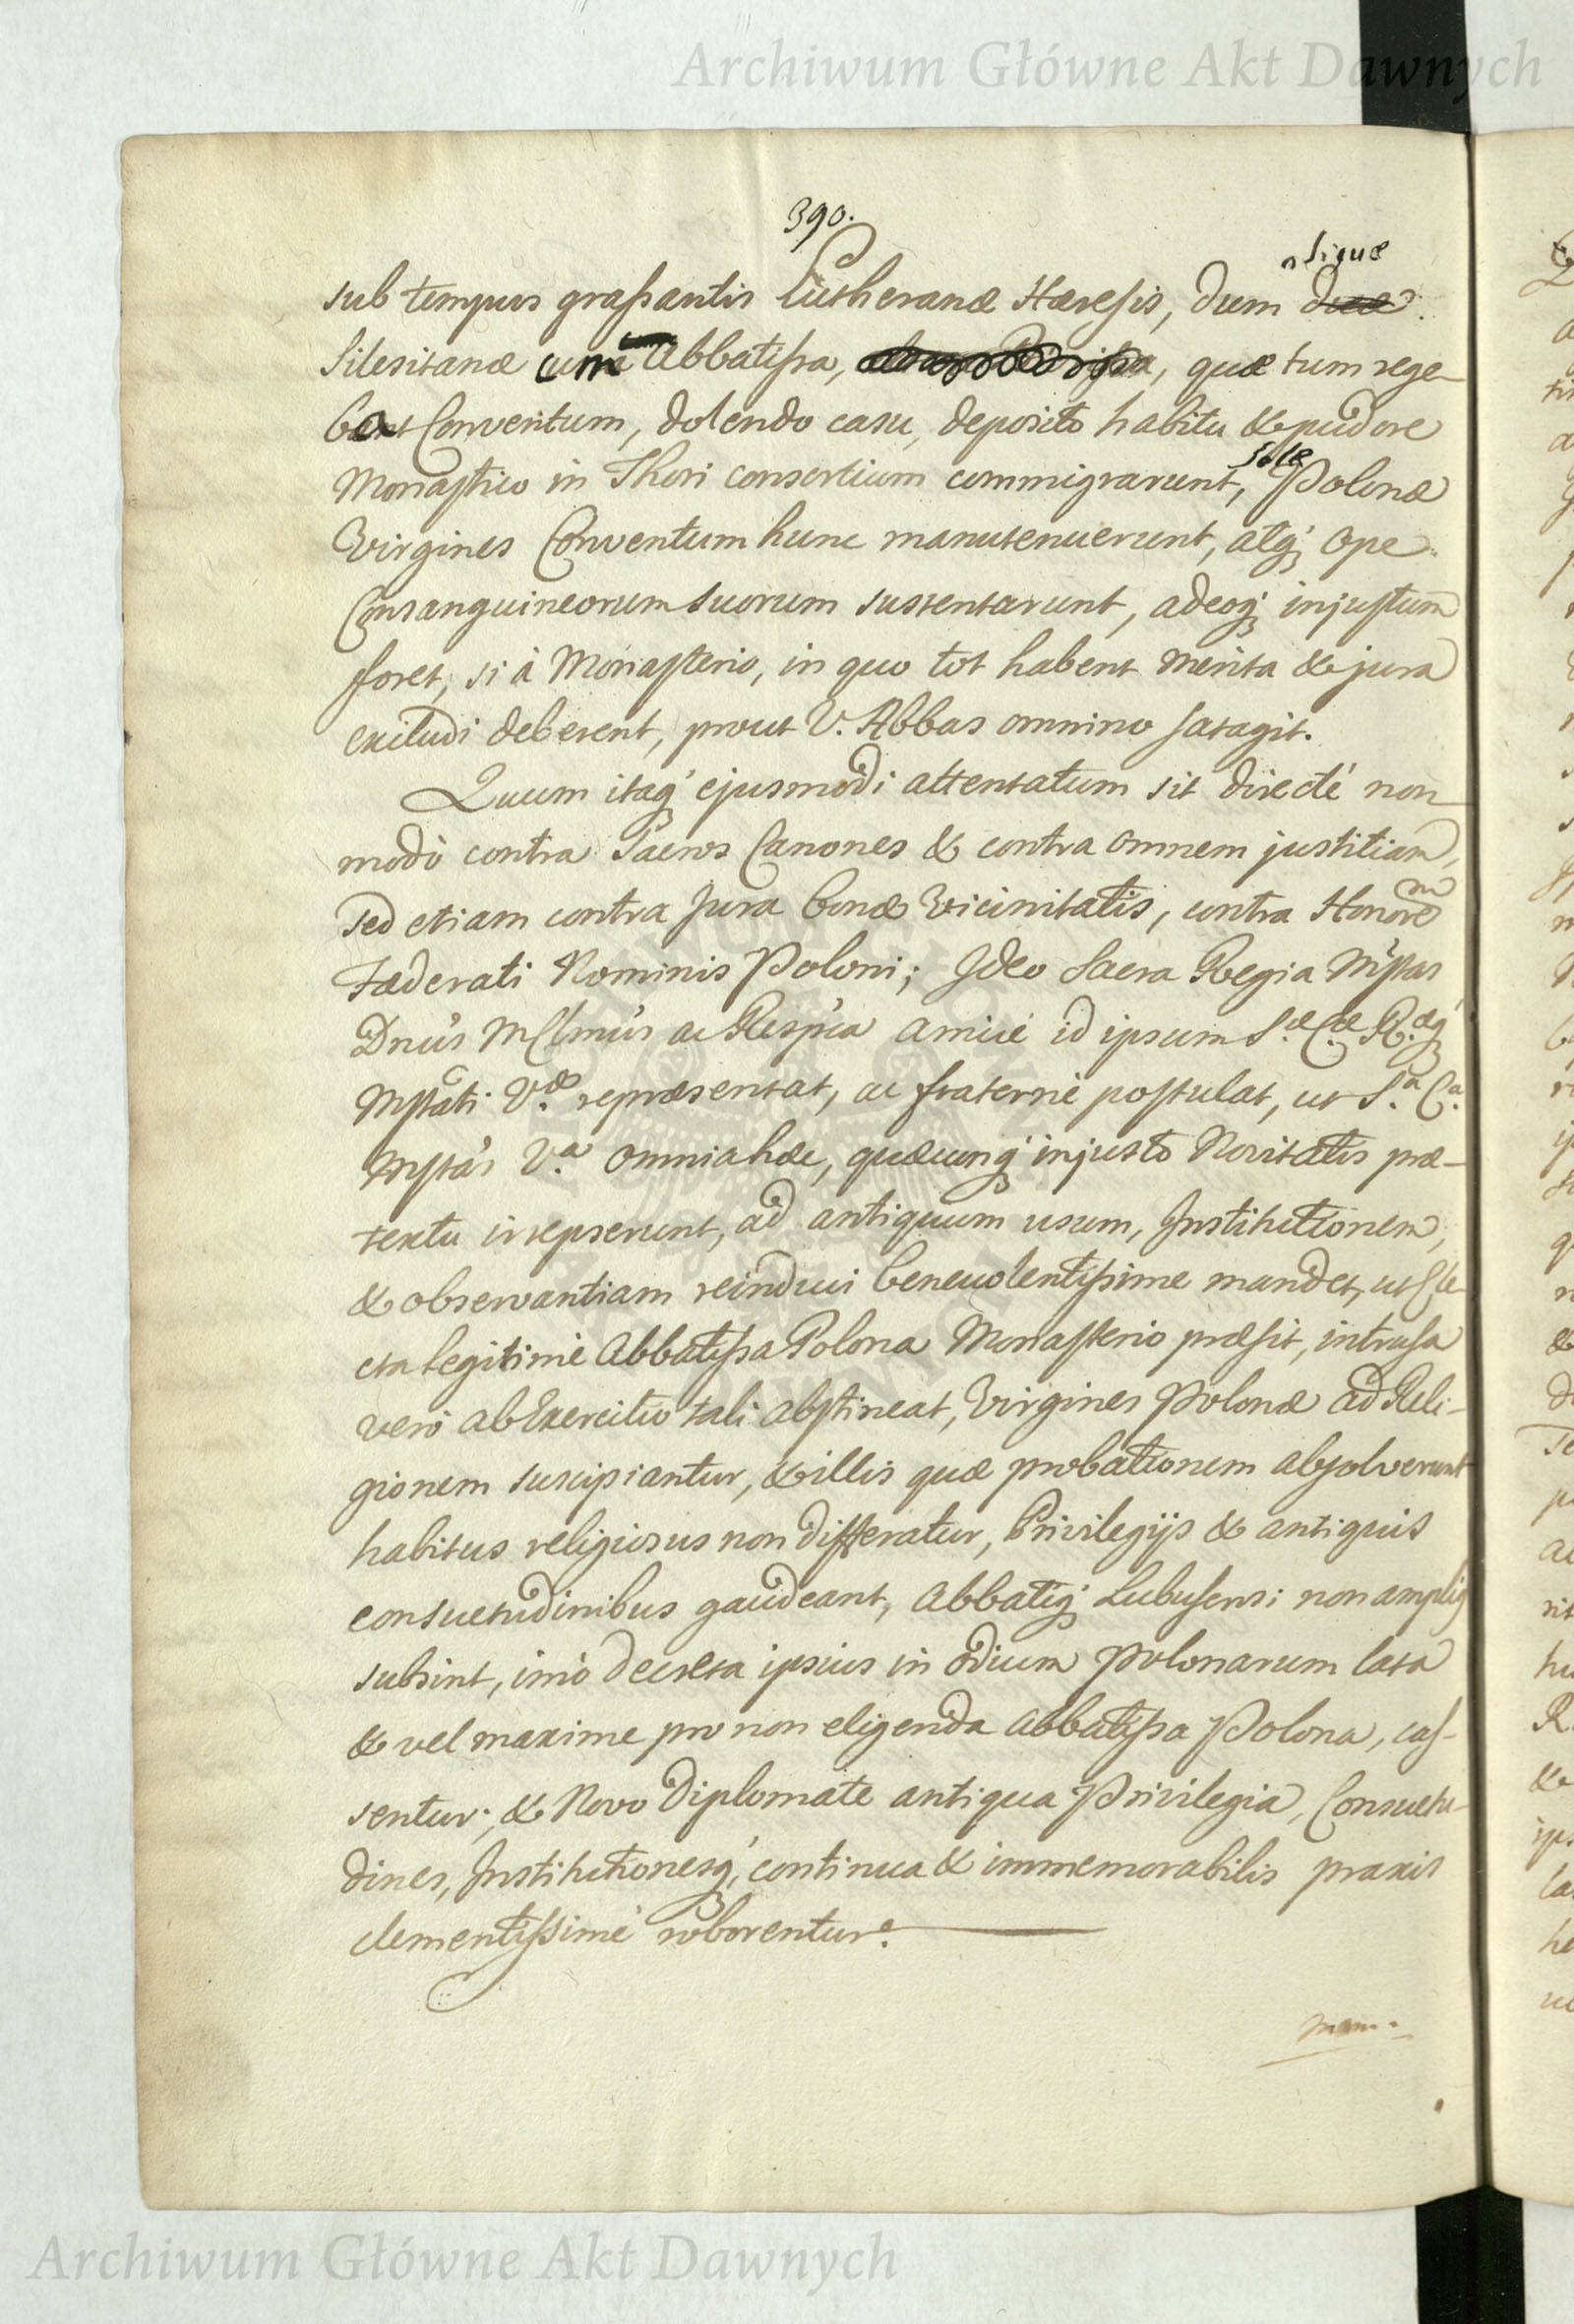 Archiwum Główne Akt Dawnych
390.
sub tempus grassantis Lutheranæ Hæresis, dum
Silesitanæ cum Abbatissa, quæ tum rege-
bat Conventum, dolendo casu, deposito habitu & pudore
Monastico in Thori consortium commigrarunt, solæ Polonæ
Virgines Conventum hunc manutenuerunt, atq́ ope
Consanguineorum suorum sustentarunt, adeoq́ injustum
foret, si à Monasterio, in quo tot habent merita & jura
excludi deberent, prout V. Abbas omnino satagit.
Quum itaq́ ejusmodi attentatum sit directè non
modò contra Sacros Canones & contra omnem justitiam,
sed etiam contra Jura bonæ Vicinitatis, contra Honorem
Fæderati Nominis Poloni; Ideo Sacra Regia Mṡtas
Dnús MClmús ac Respca amicè id ipsum S.æ C.æ R.æq́
Mstati V.æ repræsentat, ac fraternè postulat, ut S.a C.a
Mstas V.a omnia hæc, quæcunq́ injusto Novitatis præ-
textu irrepserunt, ad antiquum usum, Institutionem,
& observantiam reindui benevolentissime mandet, ut Ele-
cta legitimè Abbatissa Polona Monasterio præsit, intrusa
verò ab Exercitio tali abstineat, Virgines Polonæ ad Reli-
gionem suscipiantur, & illis quæ probationem absolverunt
habitus religiosus non differatur, Privilegijs & antiquis
consuetudinibus gaudeant, Abbatiq́ Lubusensi non amplius
subsint, imò decreta ipsius in odium Polonarum lata
& vel maxime pro non eligenda Abbatissa Polona, cas-
sentur; & Novo Diplomate antiqua Privilegia, Consuetu-
dines, Institutionesq́, continua & immemorabilis praxis
clementissimè roborentur.
Archiwum Główne Akt Dawnych